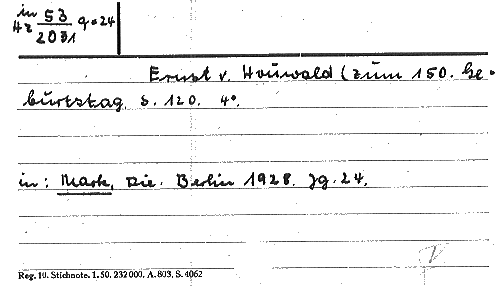 in 53 q=24
Hz 2031
Ernst v. Houwald (zum 150. Ge-
burtstag. S. 120. 4°.
in: Mark, Die. Berlin 1928. Jg. 24.
Reg. 10. Stichnote. 1. 50. 232000. A. 803. S. 4062